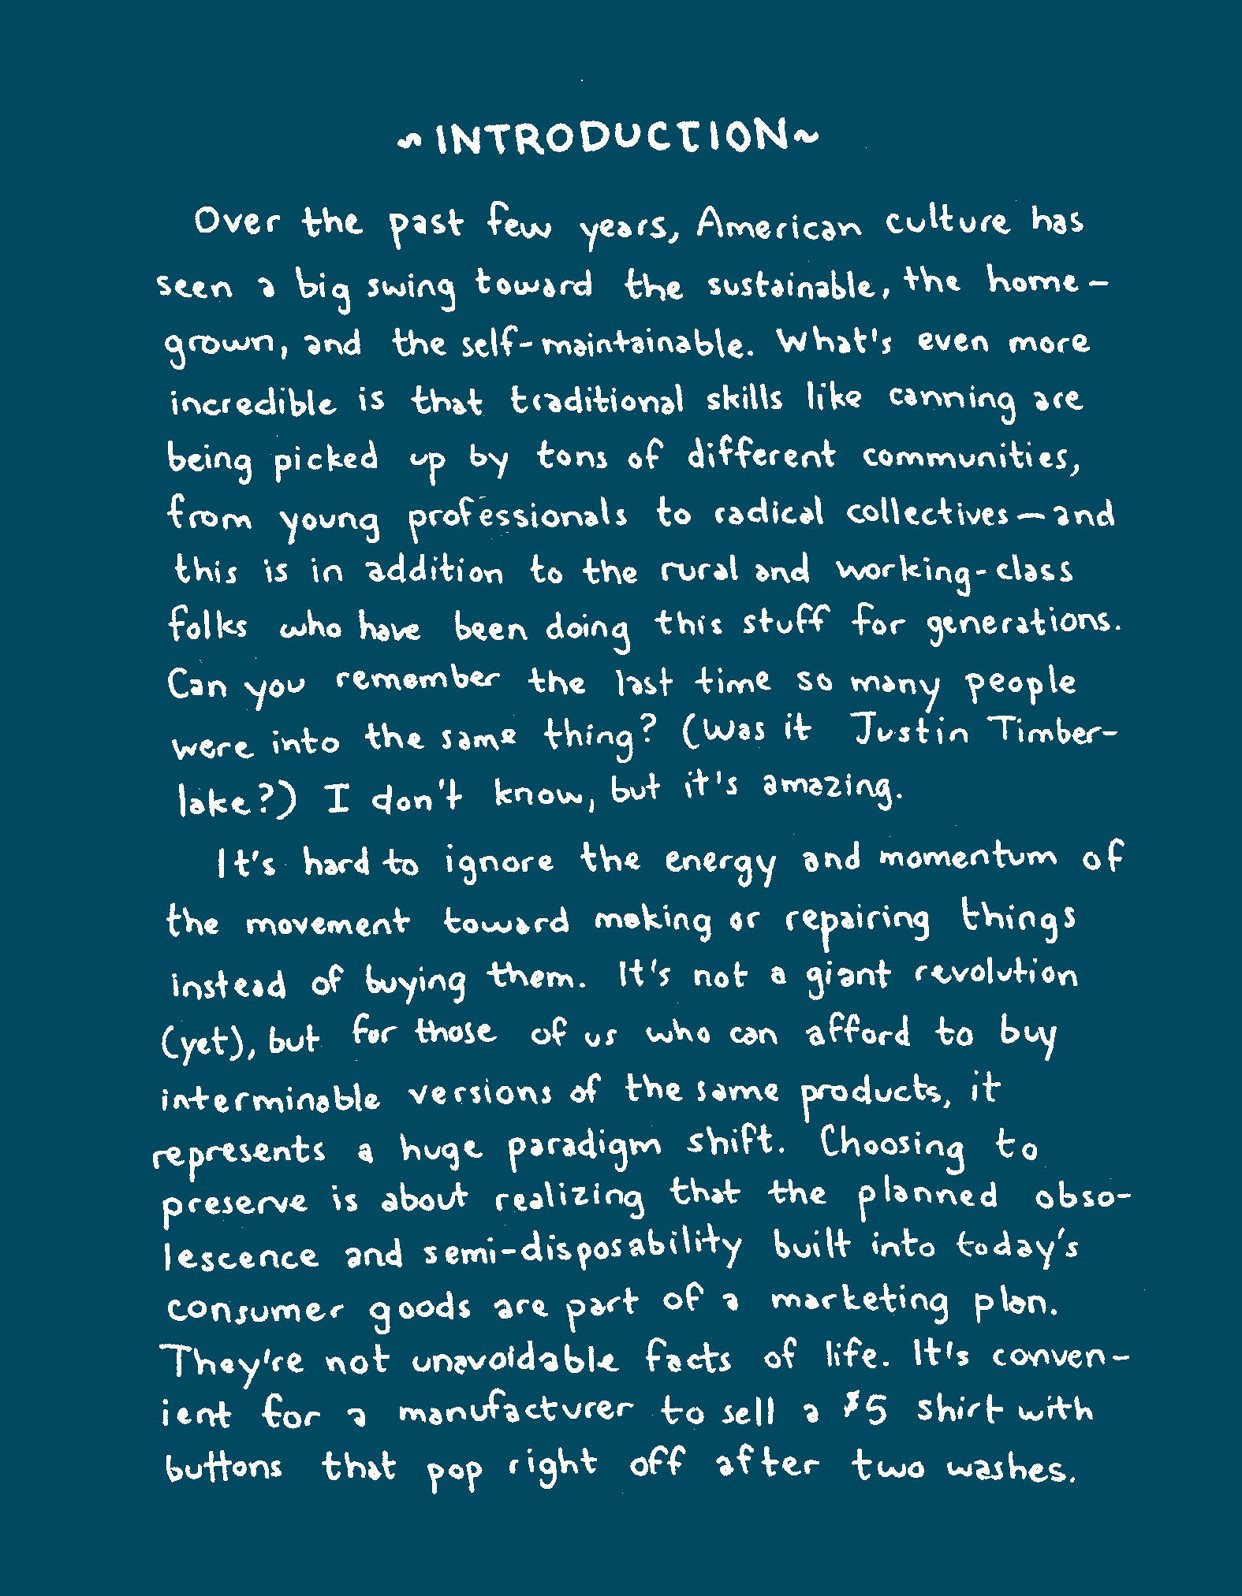 ~INTRODUCTION~
Over the past few years, American culture has
seen a big swing toward the sustainable, the home-
grown, and the self-maintainable. What's even more
incredible is that traditional skills like canning are
being picked up by tons of different communities,
from young professionals to radical collectives—and
this is in addition to the rural and working-class
folks who have been doing this stuff for generations.
Can you remember the last time so many people
were into the same thing? (Was it Justin Timber-
lake?) I don't know, but it's amazing.
It's hard to ignore the energy and momentum of
the movement toward making or repairing things
instead of buying them. It's not a giant revolution
(yet), but for those of us who can afford to buy
interminable versions of the same products, it
represents a huge paradigm shift. Choosing to
preserve is about realizing that the planned obso-
lescence and semi-disposability built into today's
consumer goods are part of a marketing plan.
They're not unavoidable facts of life. It's conven-
ient for a manufacturer to sell a $5 shirt with
buttons that pop right off after two washes.